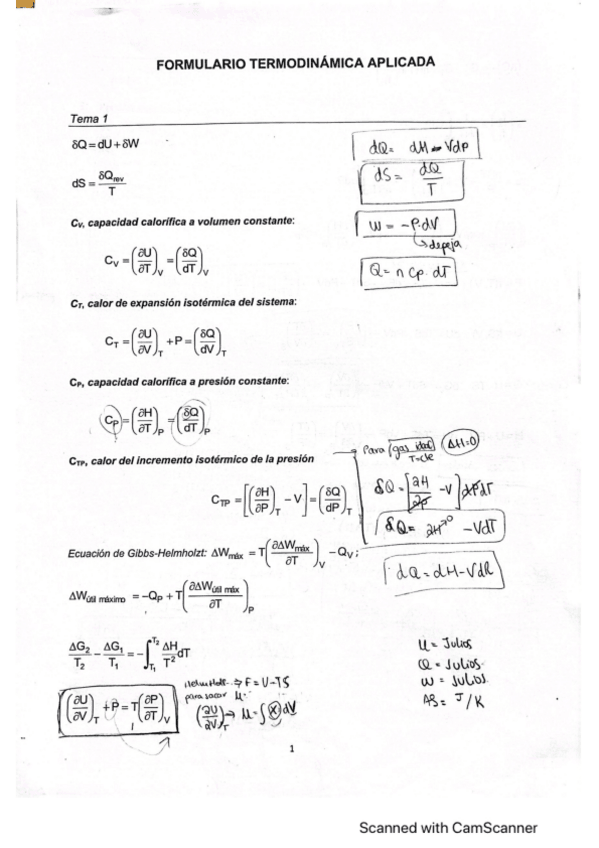 FORMULARIO TERMODINÁMICA APLICADA
Tema 1
δQ = dU + δW
dQ = dH - VdP
dS = δQrev / T
dS = dQ / T
Cv, capacidad calorífica a volumen constante:
W = -P·dV
depeja
Cv = (∂U/∂T)V = (δQ/dT)V
Q = n Cp · dT
CT, calor de expansión isotérmica del sistema:
CT = (∂U/∂V)T + P = (δQ/dV)T
CP, capacidad calorífica a presión constante:
CP = (∂H/∂T)P = (δQ/dT)P
CTP, calor del incremento isotérmico de la presión
Para gas ideal ΔH=0
T=cte
CTP = [(∂H/∂P)T - V] = (δQ/dP)T
δQ = [∂H/∂p - V] dT
δQ = ∂H→0 - VdT
Ecuación de Gibbs-Helmholzt: ΔWmáx = T(∂ΔWmáx/∂T)V - QV ;
dQ = dH - VdR
ΔWútil máximo = -QP + T(∂ΔWútil máx/∂T)P
ΔG2/T2 - ΔG1/T1 = -∫T1T2 ΔH/T² dT
U = Julios
Q = Julios
W = Julios
ΔS = J/K
→ F = U - TS
para sacar U:
(∂U/∂V)T → U = ∫(X) dV
(∂U/∂V)T + P = T(∂P/∂T)V
1
Scanned with CamScanner